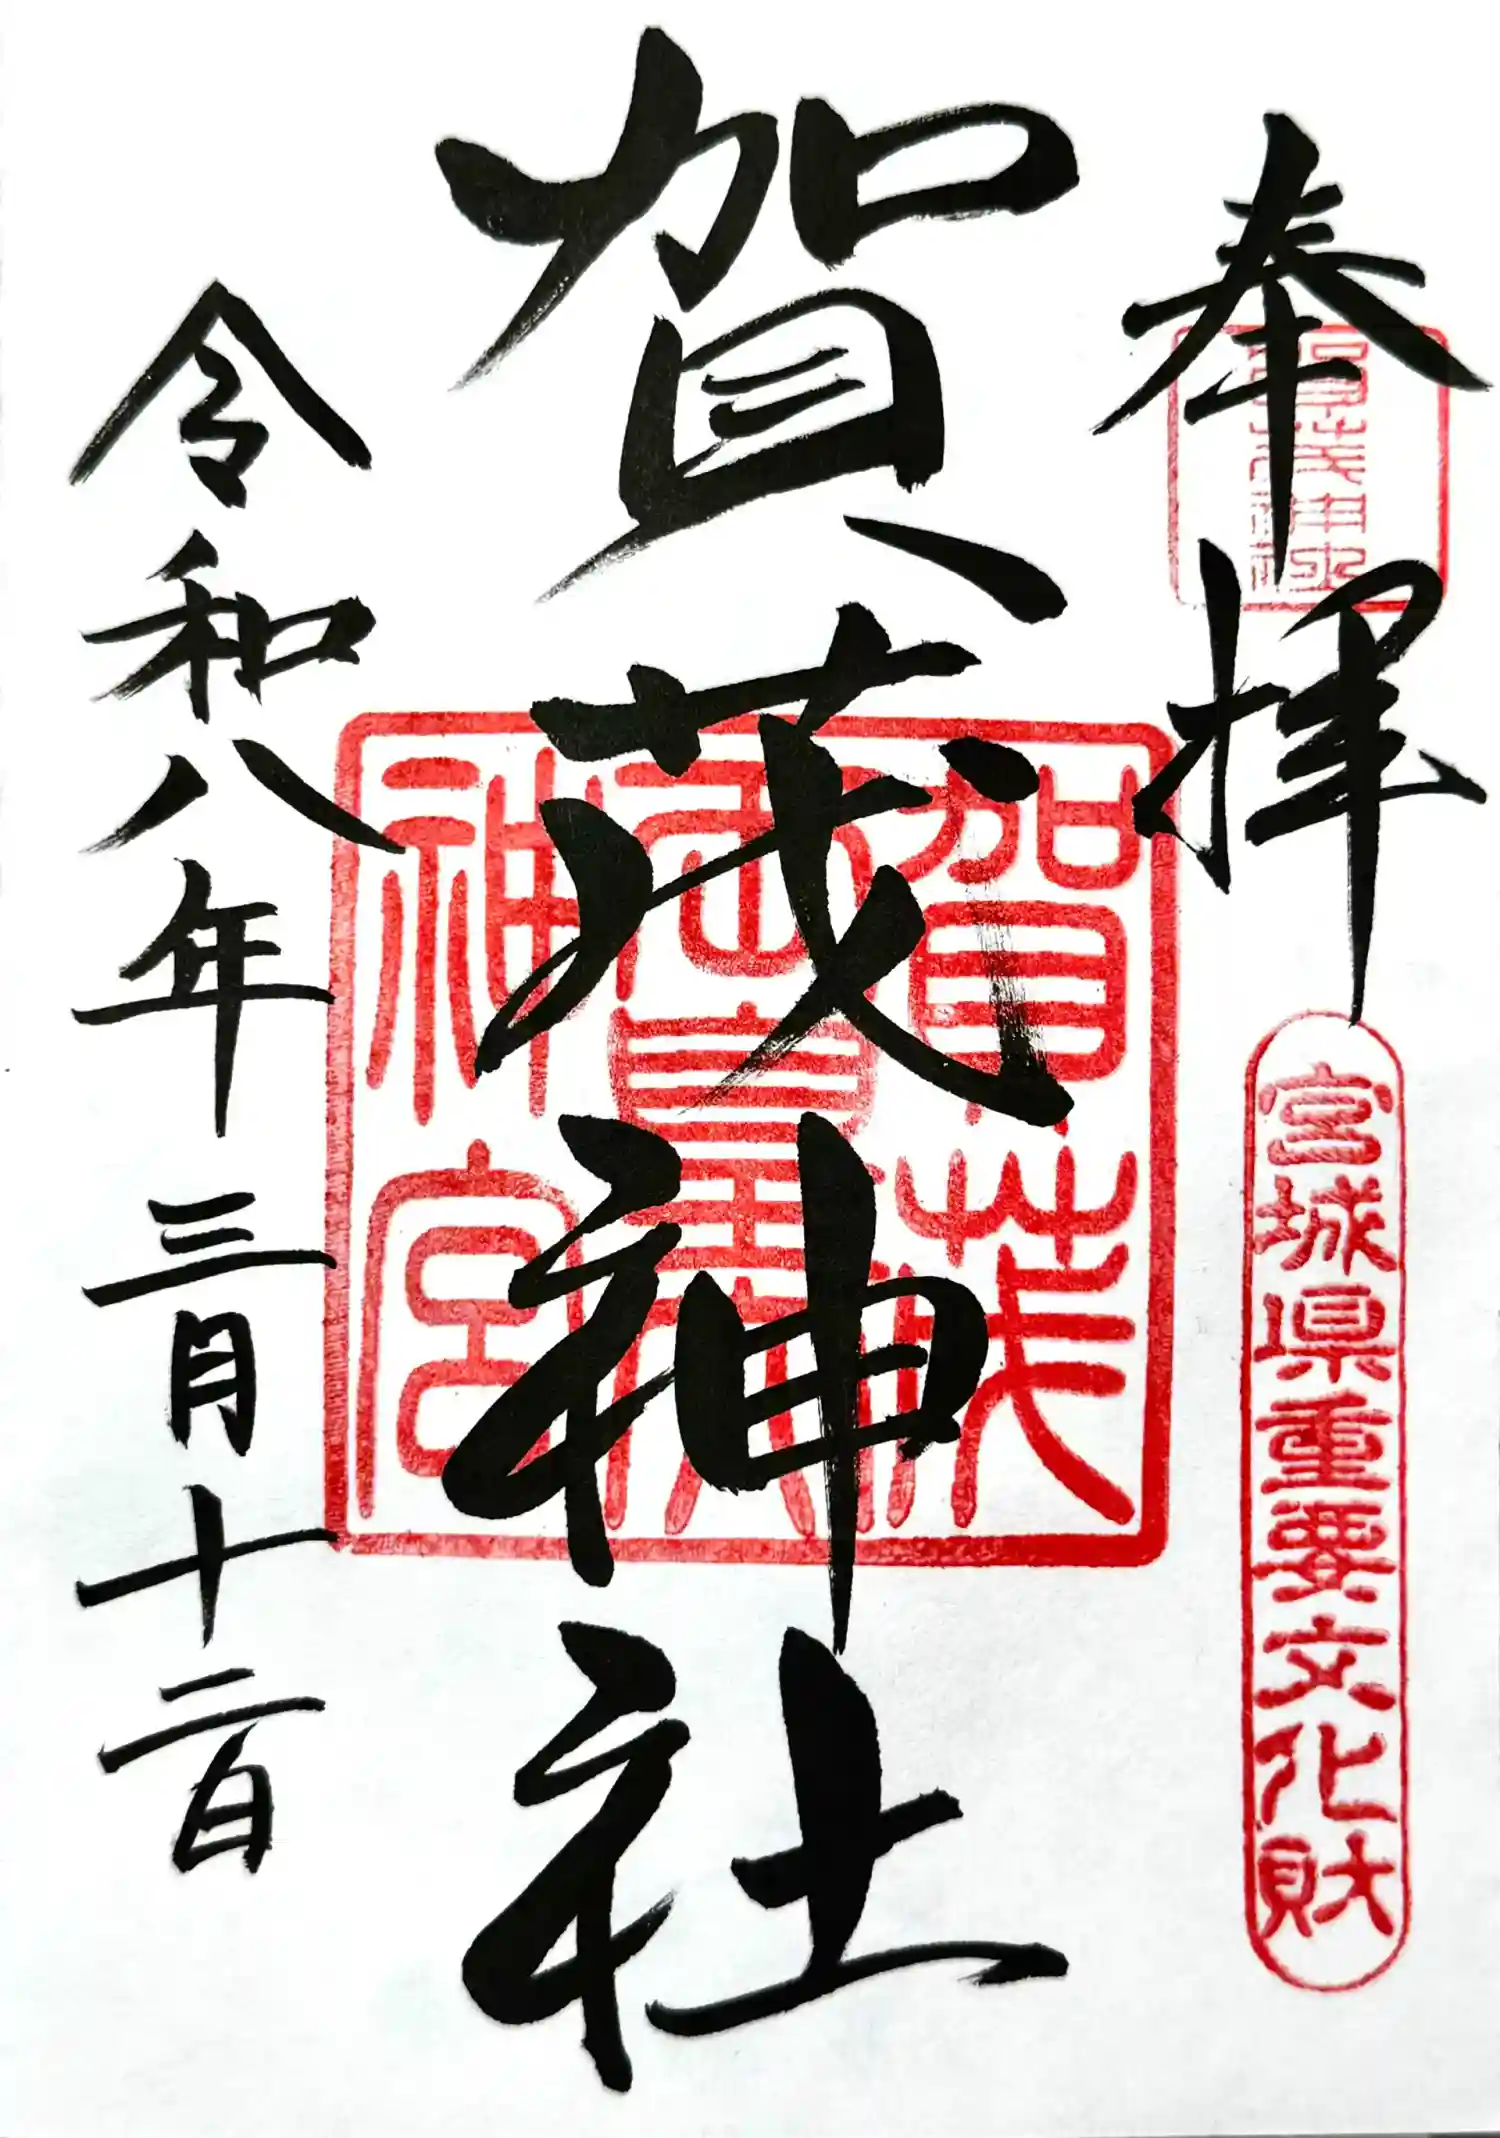 奉拝
宮城県重要文化財
賀茂神社
賀茂
神宮
令和八年三月十二日